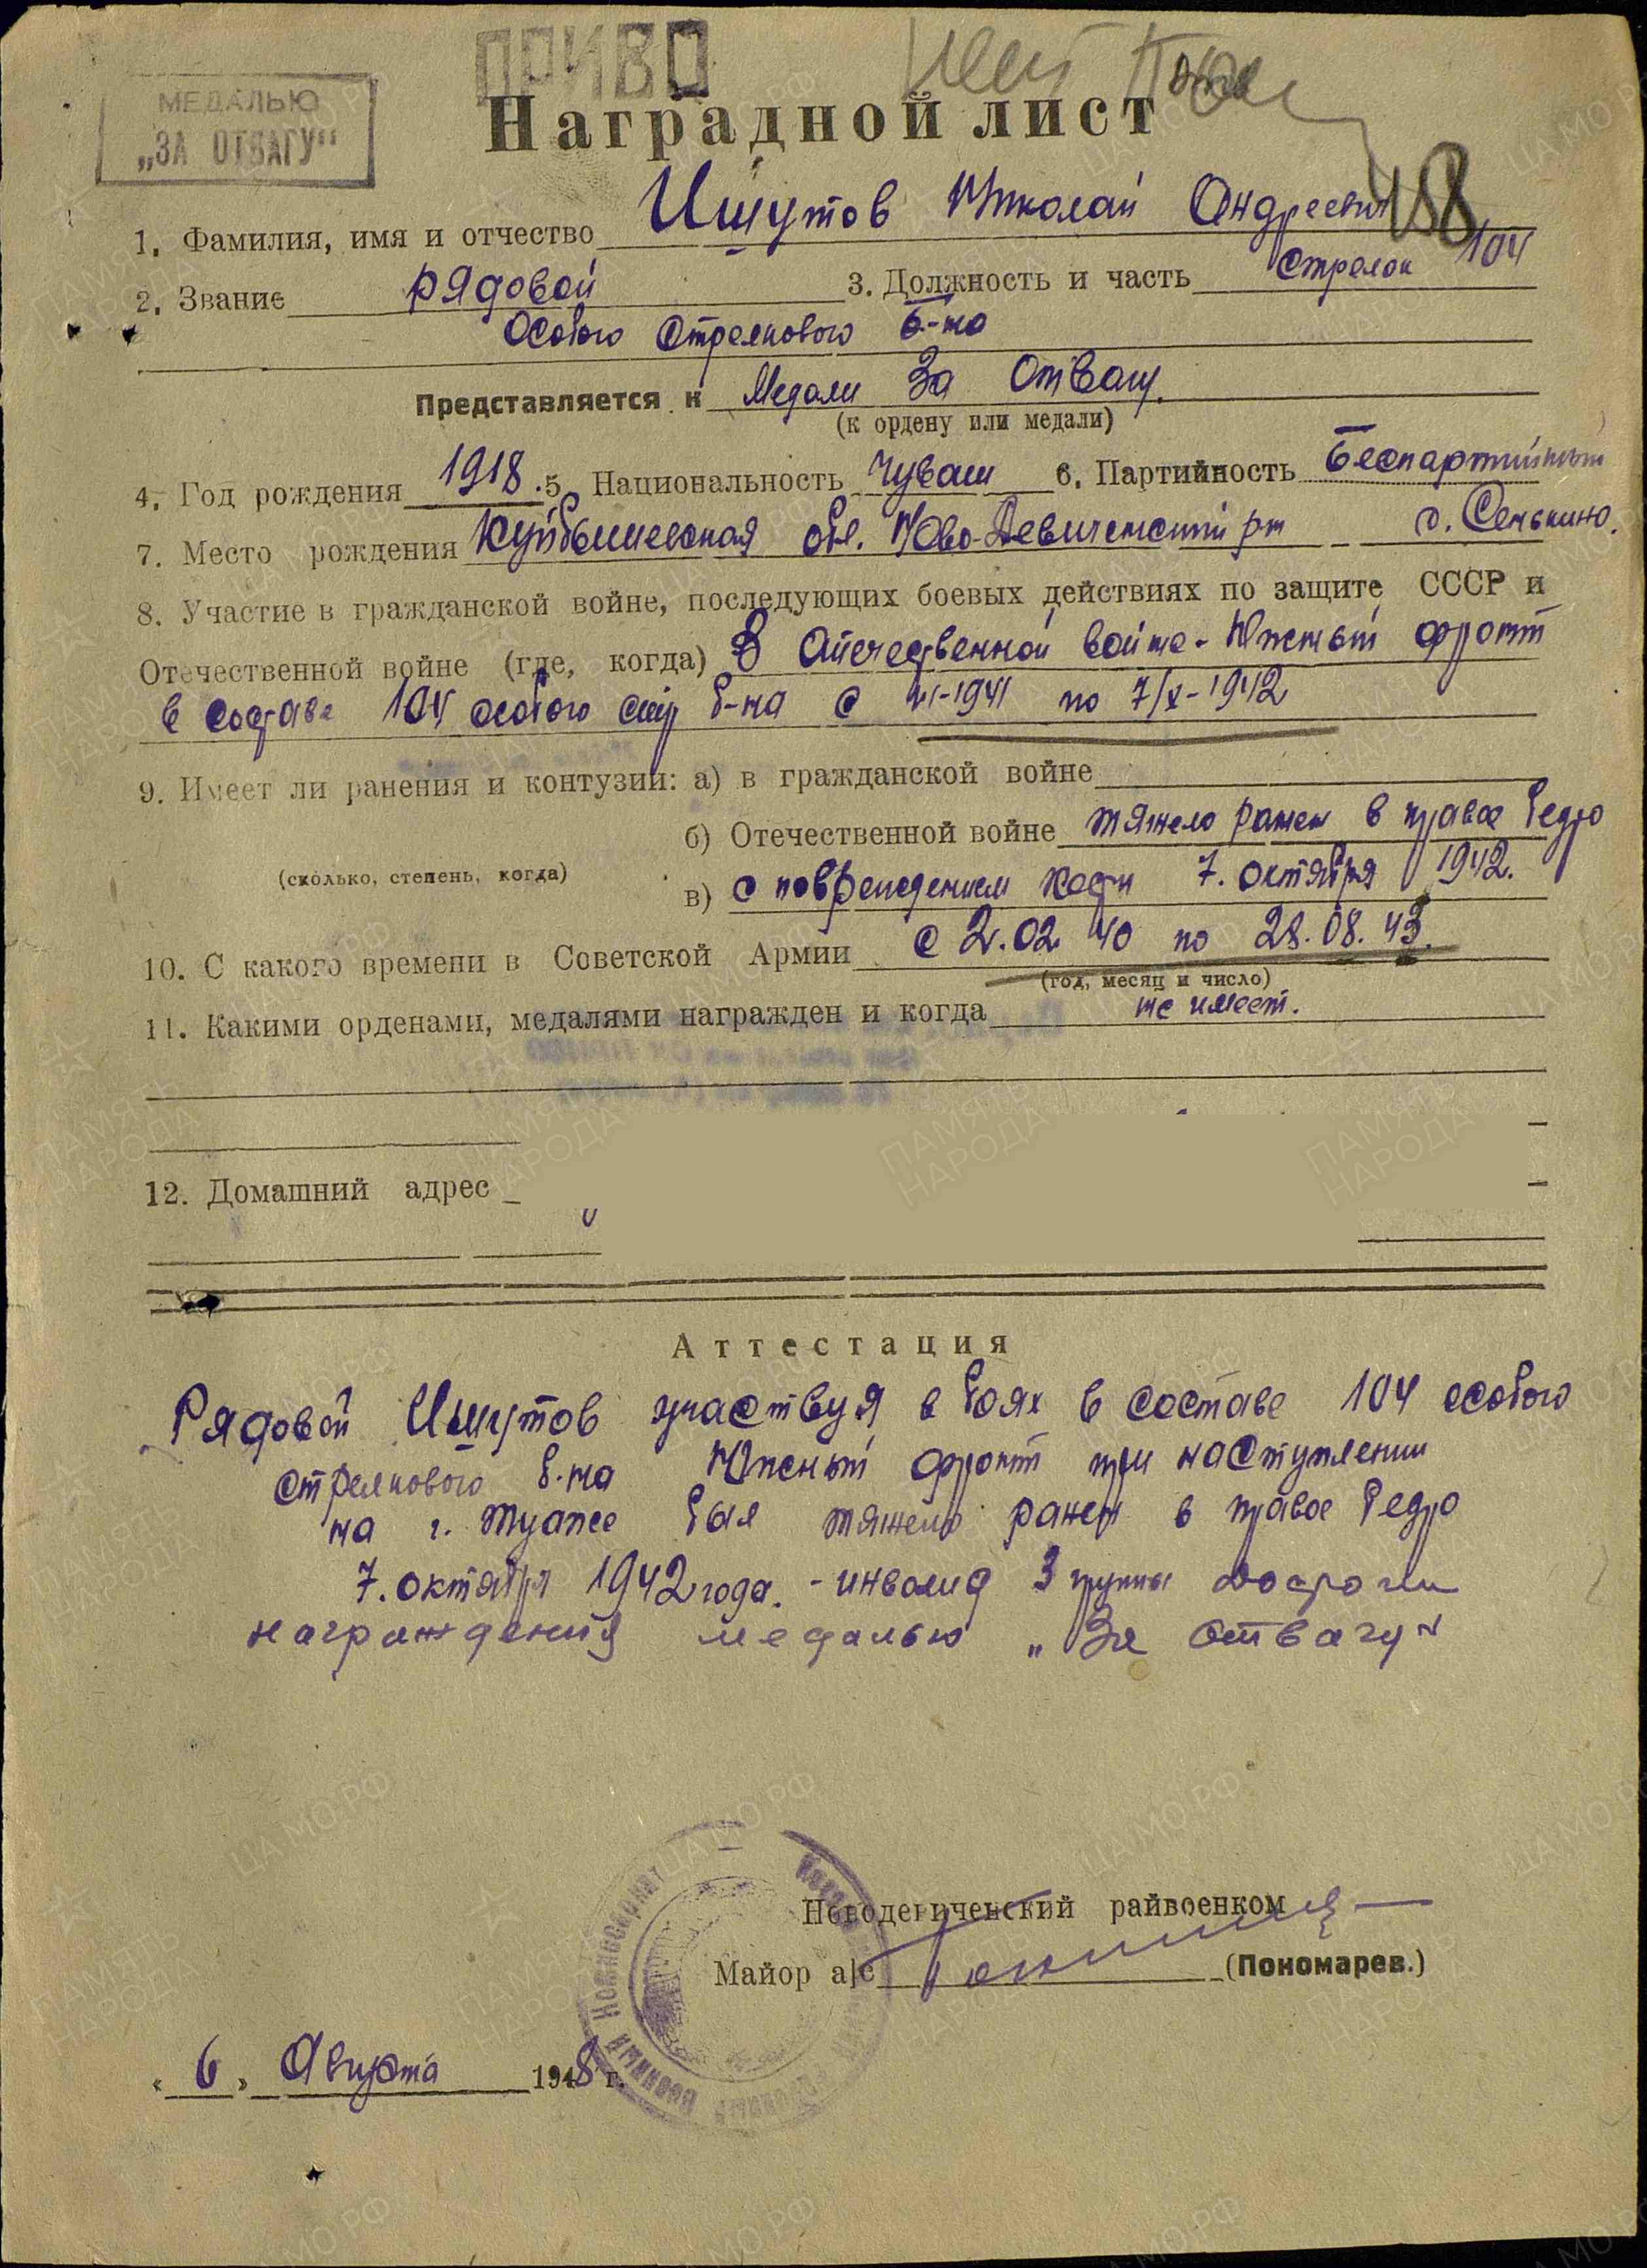 ПРИВО
МЕДАЛЬЮ
„ЗА ОТВАГУ“
Наградной лист
188
1. Фамилия, имя и отчество Ишутов Николай Андреевич
2. Звание рядовой 3. Должность и часть Стрелок 104
Особого Стрелкового б-на
Представляется к Медали За Отвагу.
(к ордену или медали)
4. Год рождения 1918. 5 Национальность Чуваш 6. Партийность Беспартийный
7. Место рождения Куйбышевская обл. Ново-Девиченский рн с. Сенькино.
8. Участие в гражданской войне, последующих боевых действиях по защите СССР и
Отечественной войне (где, когда) В Отечественной войне - Южный фронт
в составе 104 особого стр б-на с VI-1941 по 7/X-1942
9. Имеет ли ранения и контузии: а) в гражданской войне
б) Отечественной войне тяжело ранен в правое бедро
(сколько, степень, когда)
в) с повреждением кости 7. октября 1942.
10. С какого времени в Советской Армии с 2.02 40 по 28.08.43.
(год, месяц и число)
11. Какими орденами, медалями награжден и когда не имеет.
12. Домашний адрес
Аттестация
Рядовой Ишутов участвуя в боях в составе 104 особого
стрелкового б-на Южный фронт при наступлении
на г. Туапсе был тяжело ранен в правое бедро
7. октября 1942 года. - инвалид 3 группы достоин
награждения медалью „За отвагу“
Новодевиченский райвоенком
Майор а/с (Пономарев.)
« 6 » Августа 1948 г.